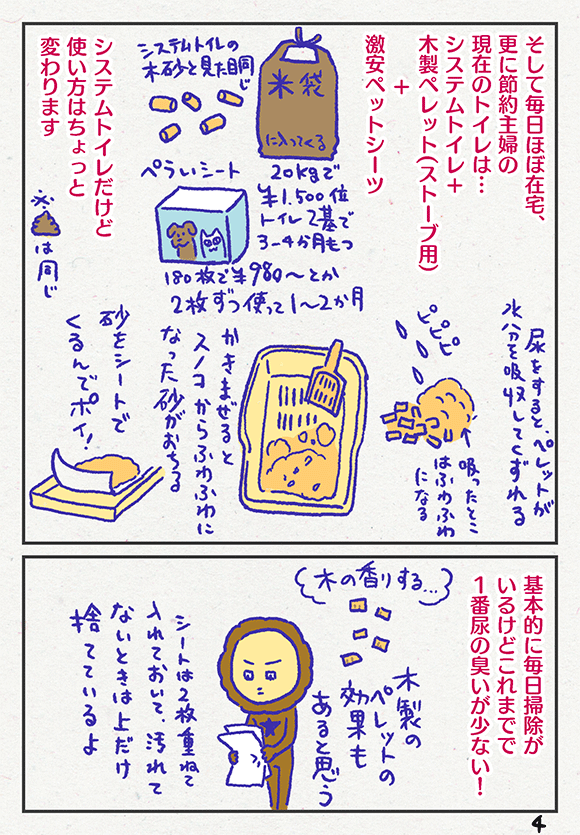 そして毎日ほぼ在宅、
更に節約主婦の
現在のトイレは…
システムトイレ+
木製ペレット(ストーブ用)
+
激安ペットシーツ
システムトイレだけど
使い方はちょっと
変わります
システムトイレの
木砂と見た目同じ
米袋
に入ってくる
20kgで
¥1.500位
トイレ2基で
3-4か月もつ
ぺらいシート
180枚で¥980〜とか
2枚ずつ使って1〜2か月
※
は同じ
尿をすると、ペレットが
水分を吸収してくずれる
ピピピ
吸ったとこ
はふわふわ
になる
かきまぜると
スノコからふわふわに
なった砂がおちる
砂をシートで
くるんでポイ!
基本的に毎日掃除が
いるけどこれまでで
1番尿の臭いが少ない!
木の香りする…
木製の
ペレットの
効果も
あると思う
シートは2枚重ねて
入れておいて、汚れて
ないときは上だけ
捨てているよ
4